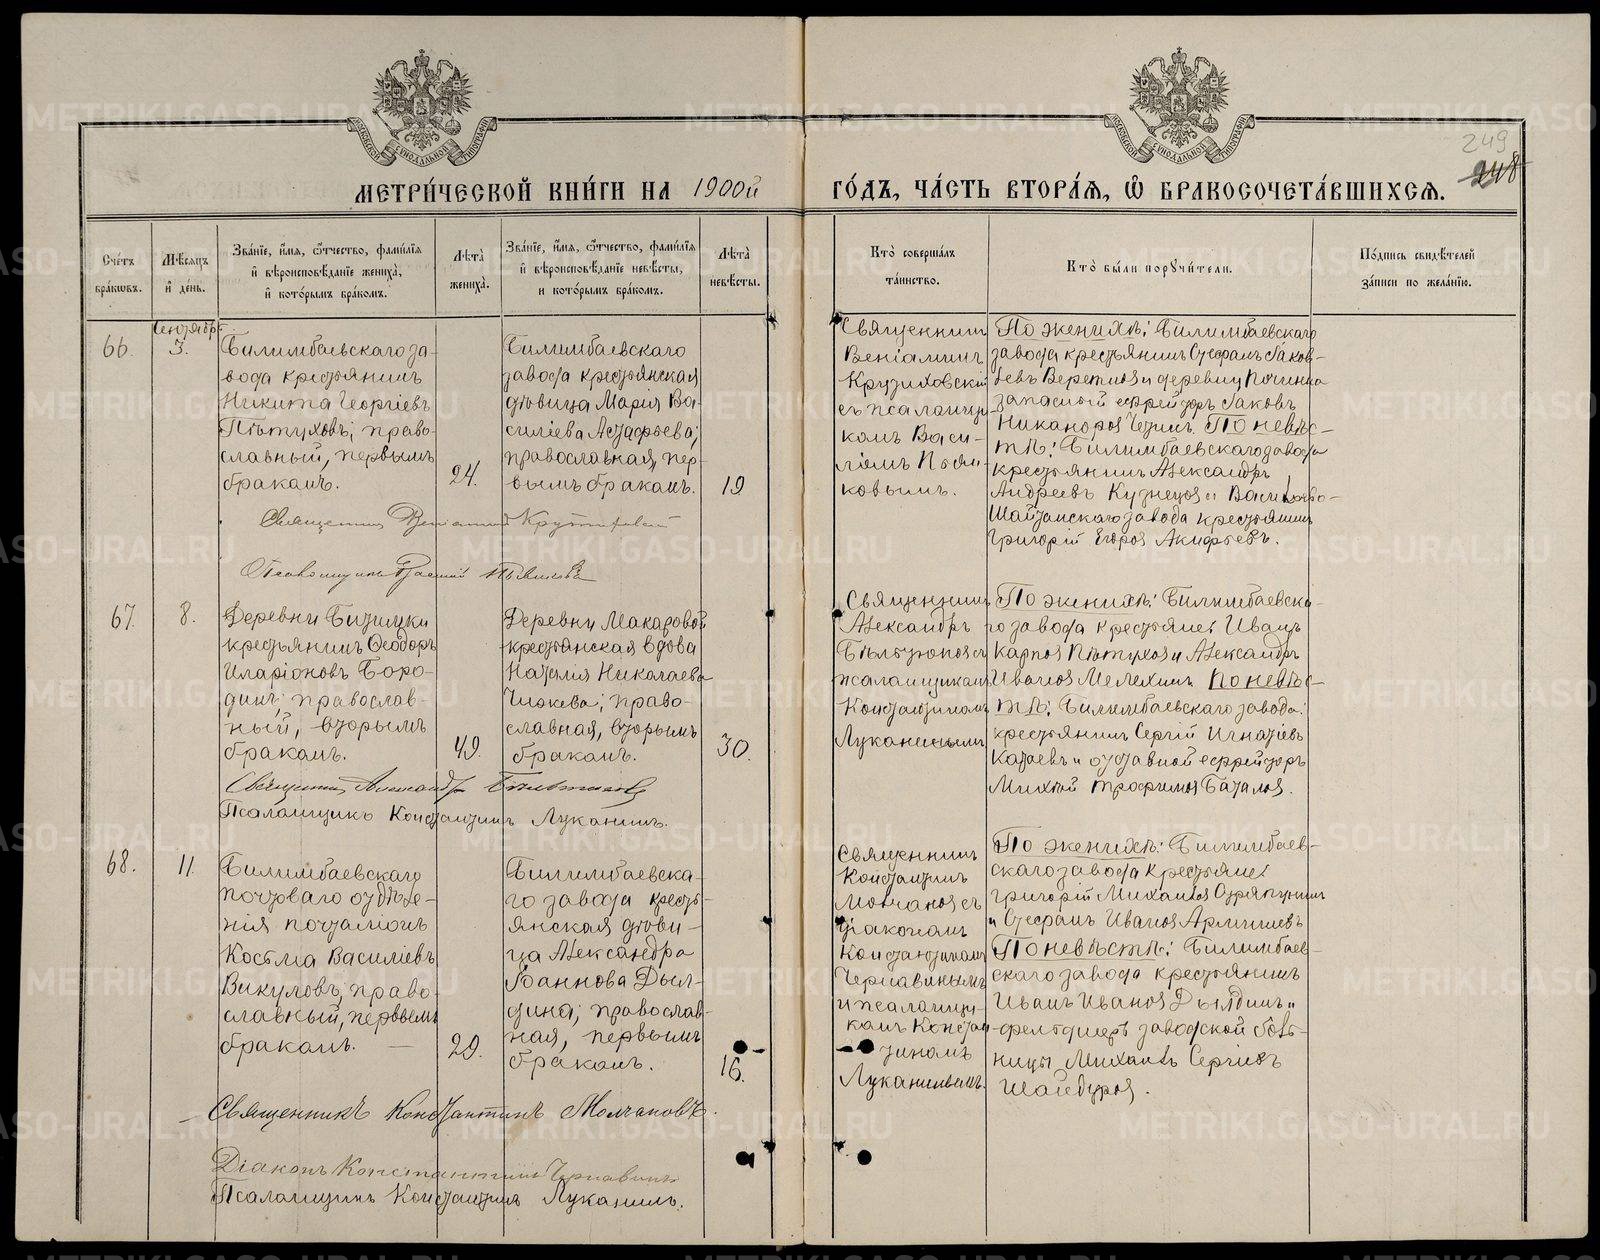 МЕТРИ́ЧЕСКОЙ КНИ́ГИ НА 1900й ГО́ДЪ, ЧА́СТЬ ВТОРА́Я, Ѿ БРАКОСОЧЕТА́ВШИХСЯ.
249
248
Сче́тъ бра́кѡвъ.
Мѣ́сяцъ и҆ де́нь.
Зва́нїе, и҆́мя, ѻ҆́тчество, фами́лїя и҆ вѣроисповѣ́данїе жениха̀, и҆ кото́рымъ бра́комъ.
Лѣта̀ жениха̀.
Зва́нїе, и҆́мя, ѻ҆́тчество, фами́лїя и҆ вѣроисповѣ́данїе невѣ́сты, и кото́рымъ бра́комъ.
Лѣта̀ невѣ́сты.
Кто̀ соверша́лъ та́инство.
Кто̀ бы́ли порꙋчи́тели.
По́дпись свидѣ́телей за́писи по жела́нїю.
66.
Сентябрь
3.
Билимбаевскаго за-
вода крестьянинъ
Никита Георгіевъ
Пѣтуховъ; право-
славный, первымъ
бракомъ.
24.
Билимбаевскаго
завода крестьянская
дѣвица Марія Ва-
силіева Астафьева;
православная, пер-
вымъ бракомъ.
19
Священникъ
Веніаминъ
Крутиховскій
съ псаломщи-
комъ Васи-
ліемъ Пьян-
ковымъ.
По женихѣ: Билимбаевскаго
завода крестьянинъ Стефанъ Іаков-
левъ Веретновъ и деревни Починка
запасный ефрейторъ Іаковъ
Никаноровъ По невѣс-
тѣ: Билимбаевскаго завода
крестьянинъ Александръ
Андреевъ Кузнецовъ и Васильево-
Шайтанскаго завода крестьянинъ
Григорій Егоровъ Акифьевъ.
Священникъ Веніаминъ Крутиховскій
Псаломщикъ Василій Пьянковъ
67.
8.
Деревни Битимки
крестьянинъ Ѳеодоръ
Иларіоновъ Боро-
динъ; православ-
ный, вторымъ
бракомъ.
49.
Деревни Макаровой
крестьянская вдова
Наталія Николаева
Чижева; право-
славная, вторымъ
бракомъ.
30.
Священникъ
Александръ
Бѣльтюковъ съ
псаломщикомъ
Константиномъ
Луканинымъ
По женихѣ: Билимбаевска-
го завода крестьяне: Иванъ
Карповъ Пѣтуховъ и Александръ
Ивановъ Мелехинъ По невѣс-
тѣ: Билимбаевскаго завода:
крестьянинъ Сергій Игнатіевъ
Катаевъ и отставной ефрейторъ
Михѣй Трофимовъ Баталовъ.
Священникъ Александръ Бѣльтюковъ
Псаломщикъ Константинъ Луканинъ.
68.
11.
Билимбаевскаго
почтоваго отдѣле-
нія почталіонъ
Косма Василіевъ
Викуловъ; право-
славный, первымъ
бракомъ. —
29.
Билимбаевска-
го завода кресть-
янская дѣви-
ца Александра
Іоаннова Дыл-
дина; православ-
ная, первымъ
бракомъ.
16.
Священникъ
Константинъ
Молчановъ съ
діакономъ
Константиномъ
Чернавинымъ
и псаломщи-
комъ Констан-
тиномъ
Луканинымъ.
По женихѣ: Билимбаев-
скаго завода крестьяне:
Григорій Михаиловъ Стряпунинъ
и Стефанъ Ивановъ
По невѣстѣ: Билимбаев-
скаго завода крестьянинъ
Иванъ Ивановъ Дылдинъ и
фельдшеръ заводской боль-
ницы Михаилъ Сергіевъ
Шайдуровъ.
Священникъ Константинъ Молчановъ.
Діаконъ Константинъ Чернавинъ
Псаломщикъ Константинъ Луканинъ.
METRIKI.GASO-URAL.RU